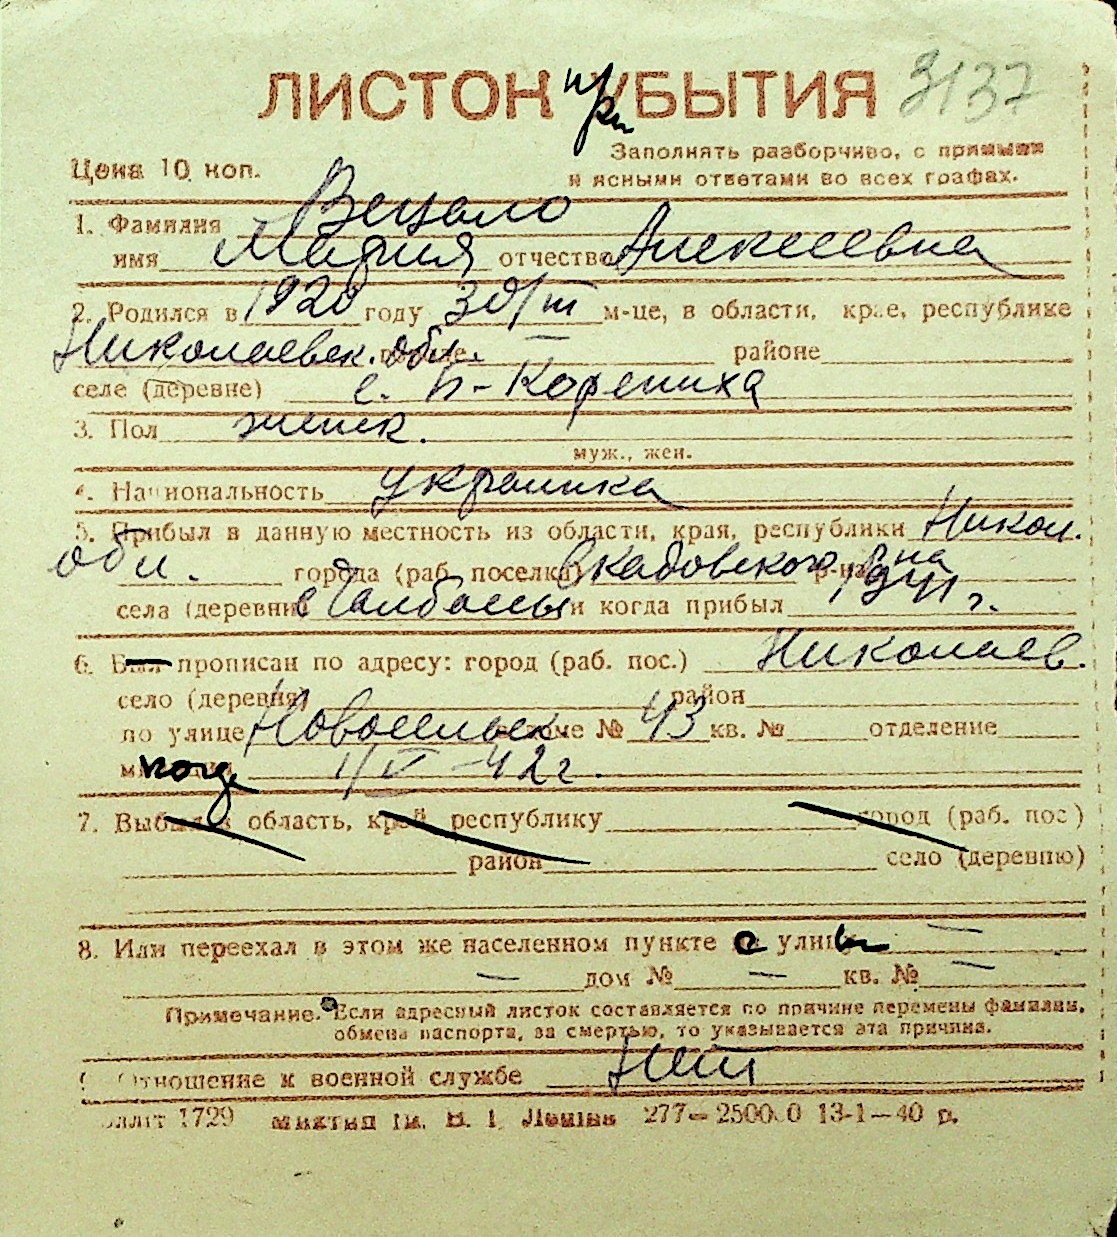 ЛИСТОК при УБЫТИЯ 3137
Цена 10 коп.
Заполнять разборчиво, с прямыми
и ясными ответами во всех графах.
1. Фамилия Вецало
имя Мария отчество Алексеевна
2. Родился в 1920 году 30/III м-це, в области, крае, республике
Николаевск. обл. — районе
селе (деревне) с. Б-Корениха
3. Пол женск.
муж., жен.
4. Национальность украинка
5. Прибыл в данную местность из области, края, республики Никол.
обл. города (раб. поселка) Скадовского р-на
села (деревни) с Чалбассы и когда прибыл 1941 г.
6. Был прописан по адресу: город (раб. пос.) Николаев.
село (деревня) район
по улице Новосельск доме № 43 кв. № отделение
когда 1/V-42 г.
7. Выбыл в область, край, республику город (раб. пос)
район село (деревню)
8. Или переехал в этом же населенном пункте с улицы —
— дом № — кв. № —
Примечание. Если адресный листок составляется по причине перемены фамилии,
обмена паспорта, за смертью, то указывается эта причина.
9. Отношение к военной службе Нет
1729 277—25000 13-1—40 р.